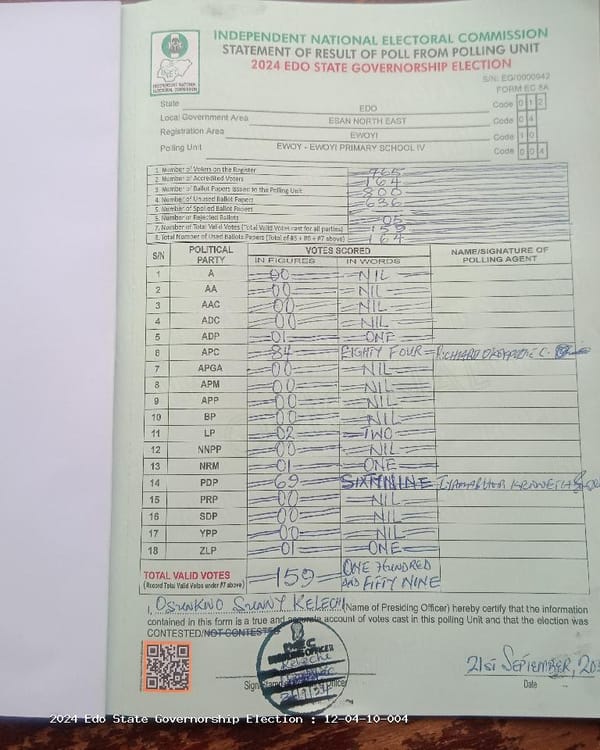 INDEPENDENT NATIONAL ELECTORAL COMMISSION
STATEMENT OF RESULT OF POLL FROM POLLING UNIT
2024 EDO STATE GOVERNORSHIP ELECTION
S/N: EG/0000942
FORM EC 8A
INDEPENDENT NATIONAL ELECTORAL COMMISSION
State EDO Code 0 1 2
Local Government Area ESAN NORTH EAST Code 0 4
Registration Area EWOYI Code 1 0
Polling Unit EWOY - EWOYI PRIMARY SCHOOL IV Code 0 0 4
1. Number of Voters on the Register 765
2. Number of Accredited Voters 164
3. Number of Ballot Papers Issued to the Polling Unit 800
4. Number of Unused Ballot Papers 636
5. Number of Spoiled Ballot Papers
6. Number of Rejected Ballots 05
7. Number of Total Valid Votes (Total Valid Votes cast for all parties) 159
8. Total Number of Used Ballots Papers (Total of #5 + #6 + #7 above) 164
S/N POLITICAL PARTY VOTES SCORED NAME/SIGNATURE OF POLLING AGENT
IN FIGURES IN WORDS
1 A 00 NIL
2 AA 00 NIL
3 AAC 00 NIL
4 ADC 00 NIL
5 ADP 01 ONE
6 APC 84 EIGHTY FOUR RICHARD C.
7 APGA 00 NIL
8 APM 00 NIL
9 APP 00 NIL
10 BP 00 NIL
11 LP 02 TWO
12 NNPP 00 NIL
13 NRM 01 ONE
14 PDP 69 SIXTY NINE
15 PRP 00 NIL
16 SDP 00 NIL
17 YPP 00 NIL
18 ZLP 01 ONE
TOTAL VALID VOTES 159 ONE HUNDRED
(Record Total Valid Votes under #7 above) AND FIFTY NINE
I, OSUNKWO SUNNY KELECHI (Name of Presiding Officer) hereby certify that the information
contained in this form is a true and accurate account of votes cast in this polling Unit and that the election was
CONTESTED/NOT CONTESTED
INEC
PRESIDING OFFICER
Kelechi
21ST SEPTEMBER, 20
Date
2024 Edo State Governorship Election : 12-04-10-004